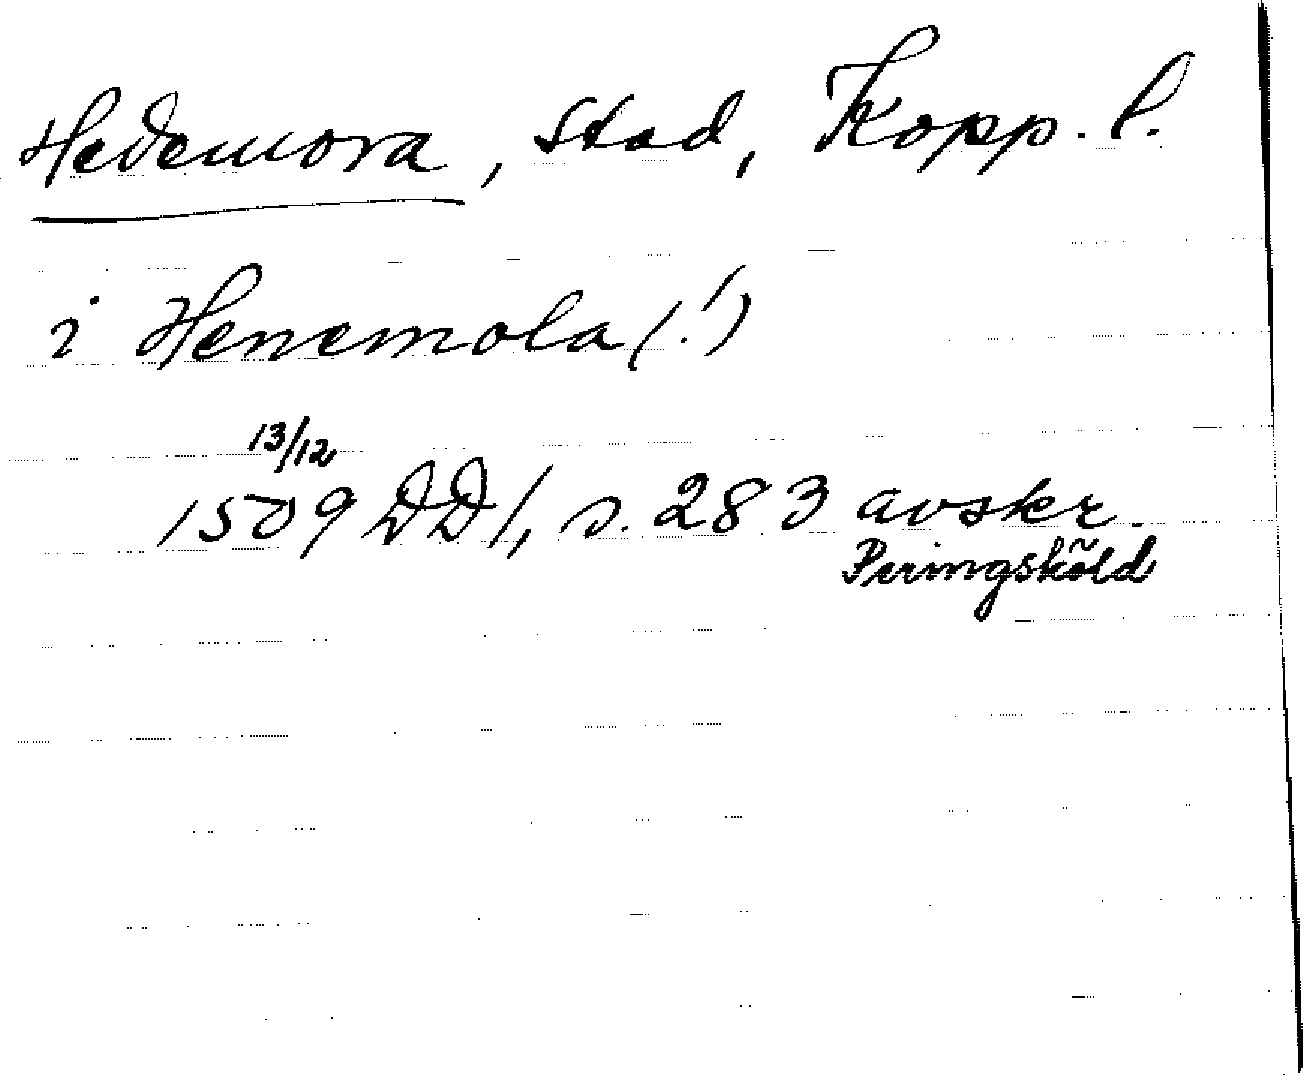 Hedemora, stad, Kopp. l.
i Henemola (!)
13/12
1509 DD 1, s. 283 avskr.
Peringsköld